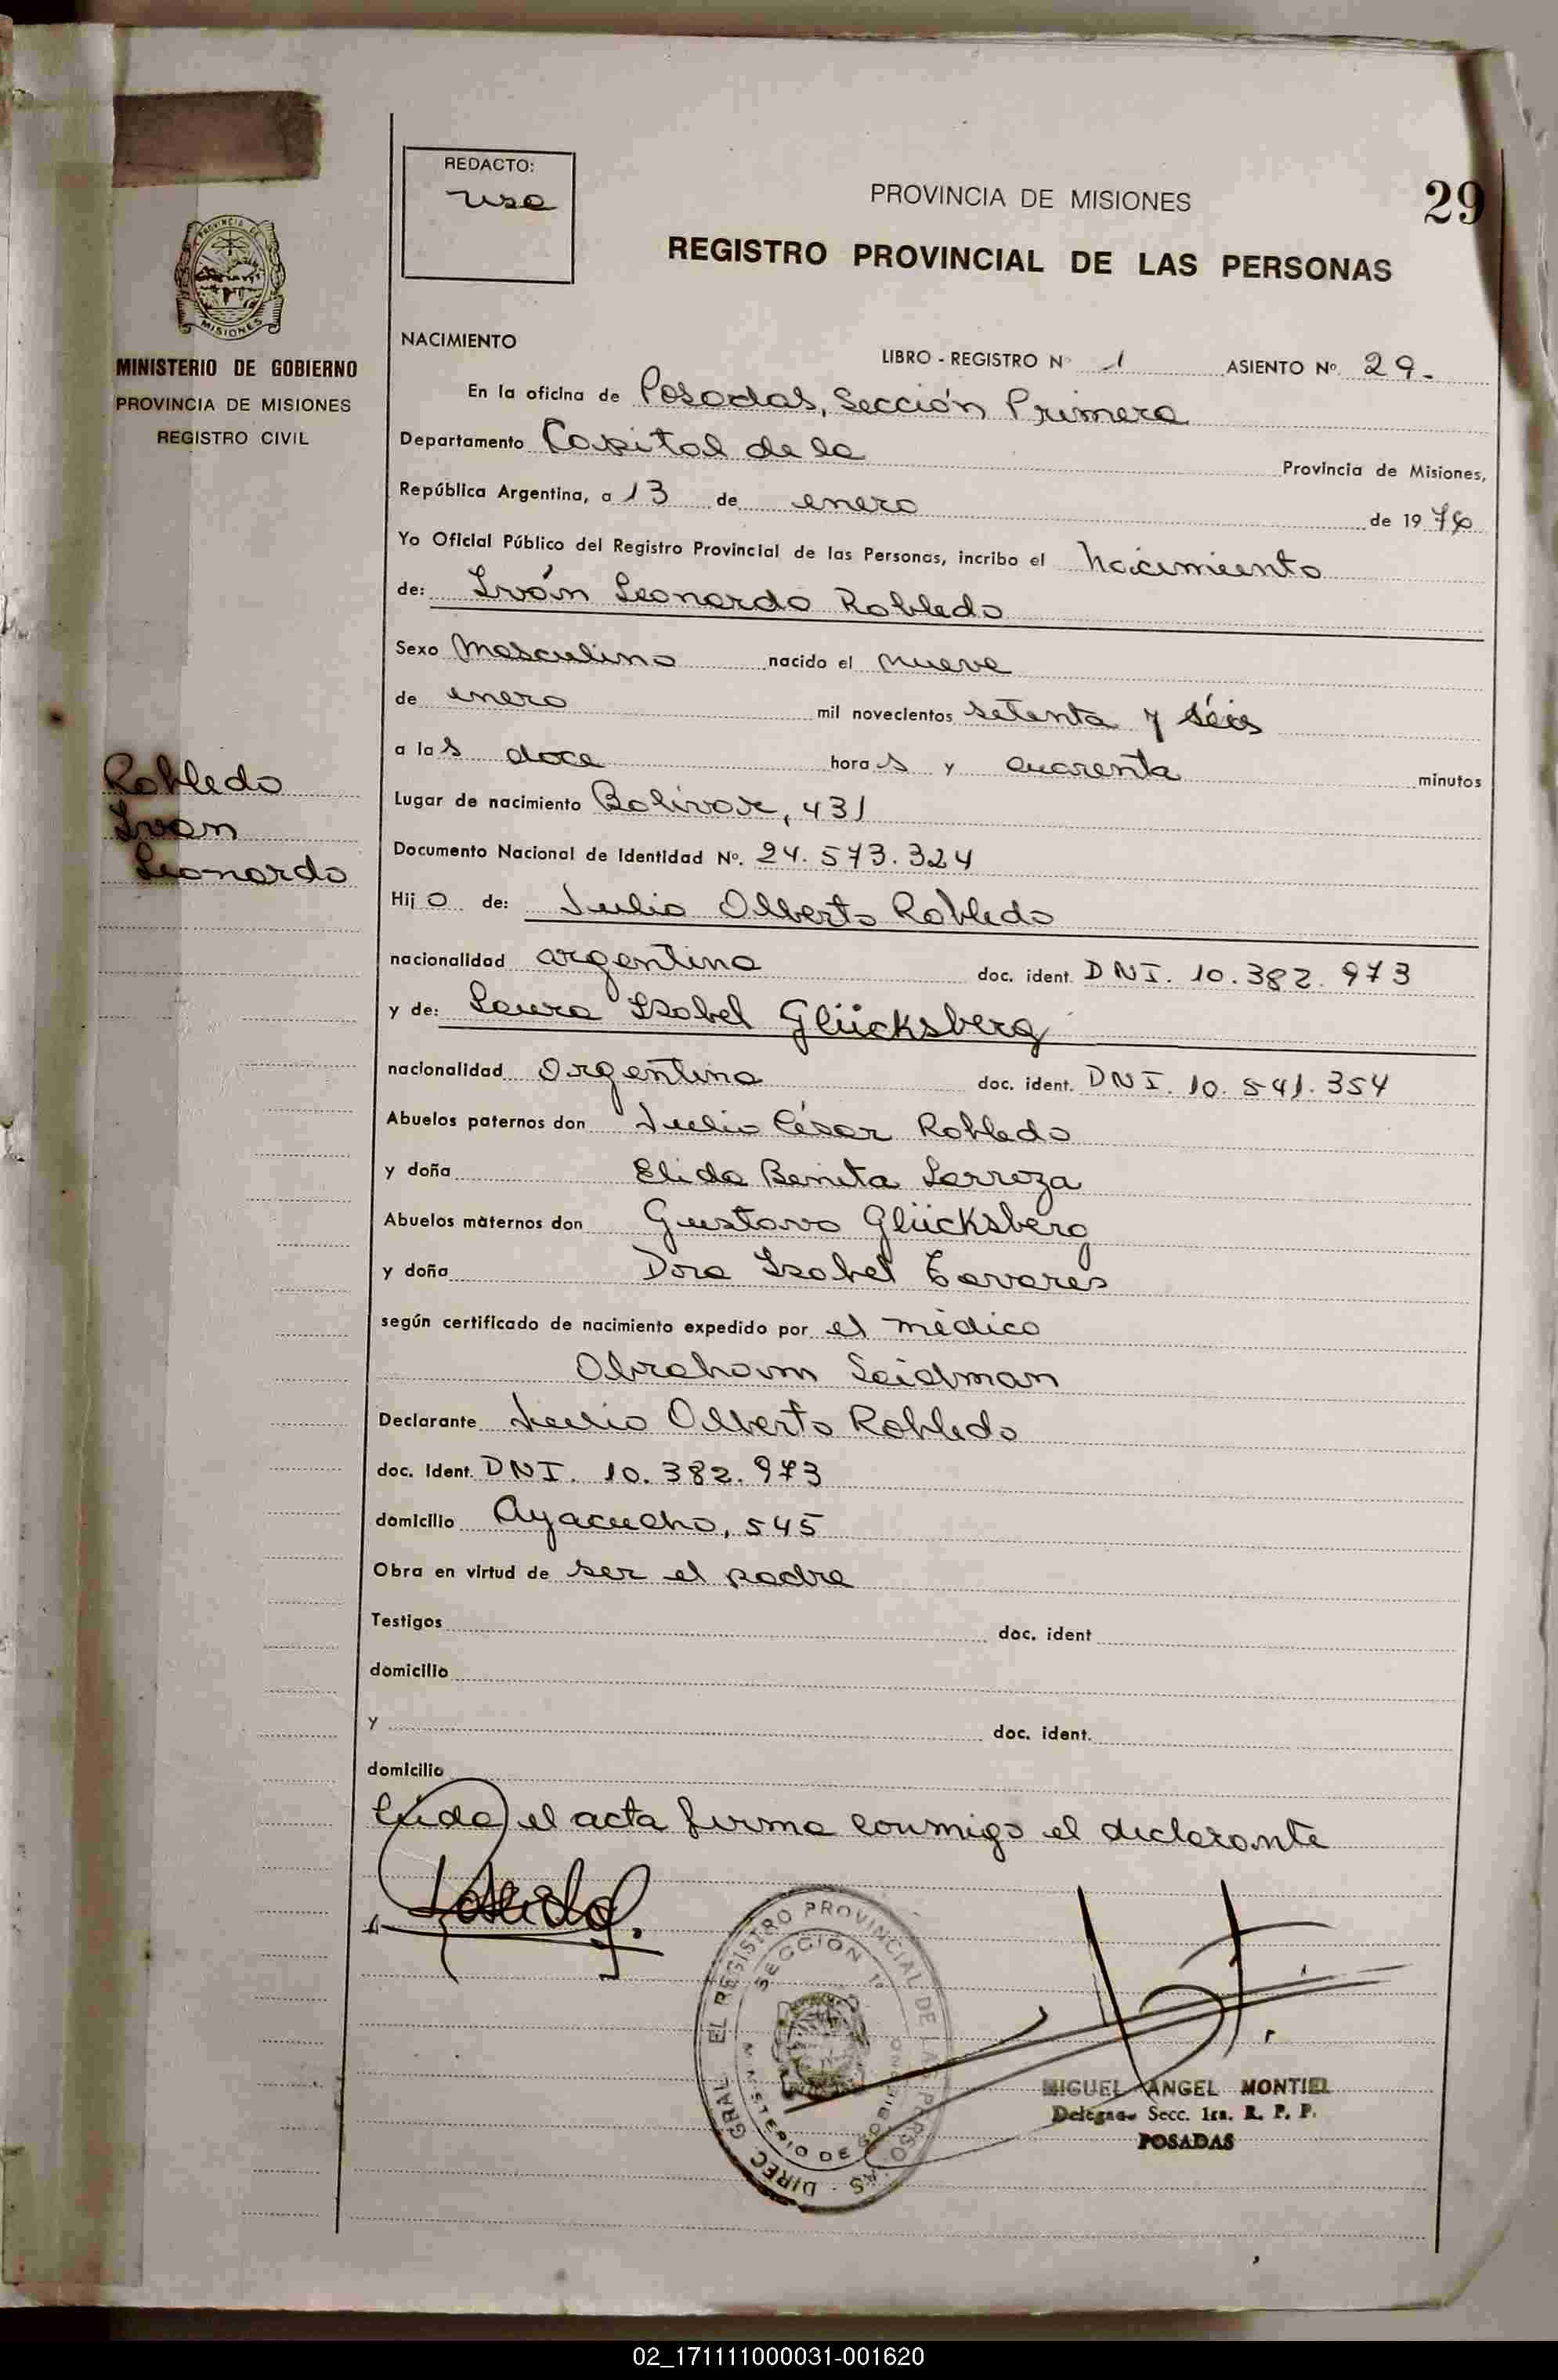 REDACTO:
usa
PROVINCIA DE MISIONES
29
REGISTRO PROVINCIAL DE LAS PERSONAS
PROVINCIA DE
MISIONES
MINISTERIO DE GOBIERNO
PROVINCIA DE MISIONES
REGISTRO CIVIL
NACIMIENTO
LIBRO - REGISTRO Nº 1 ASIENTO Nº. 29.
En la oficina de Posadas, Sección Primera
Departamento Capital de la Provincia de Misiones,
República Argentina, a 13 de enero de 1976
Yo Oficial Público del Registro Provincial de las Personas, incribo el nacimiento
de: Iván Leonardo Robledo
Sexo Masculino nacido el nueve
de enero mil novecientos setenta y séis
a las doce horas y cuarenta minutos
Robledo
Ivan
Leonardo
Lugar de nacimiento Bolívar, 431
Documento Nacional de Identidad Nº. 24.573.324
Hijo de: Julio Alberto Robledo
nacionalidad argentina doc. ident. DNI. 10.382.973
y de: Laura Isabel Glücksberg
nacionalidad argentina doc. ident. DNI. 10.541.354
Abuelos paternos don Julio César Robledo
y doña Elida Benita Larroza
Abuelos maternos don Gustavo Glücksberg
y doña Dora Isabel Tavares
según certificado de nacimiento expedido por el médico
Abraham Seidman
Declarante Julio Alberto Robledo
doc. Ident. DNI. 10.382.973
domicilio Ayacucho, 545
Obra en virtud de ser el padre
Testigos doc. ident
domicilio
y doc. ident.
domicilio
Leída el acta firma conmigo el declarante
DIREC GRAL EL REGISTRO PROVINCIAL DE LAS PERSONAS
SECCION 1º
MINISTERIO DE GOBIERNO
MIGUEL ANGEL MONTIEL
Delegado Secc. 1ra. R. P. P.
POSADAS
02_171111000031-001620